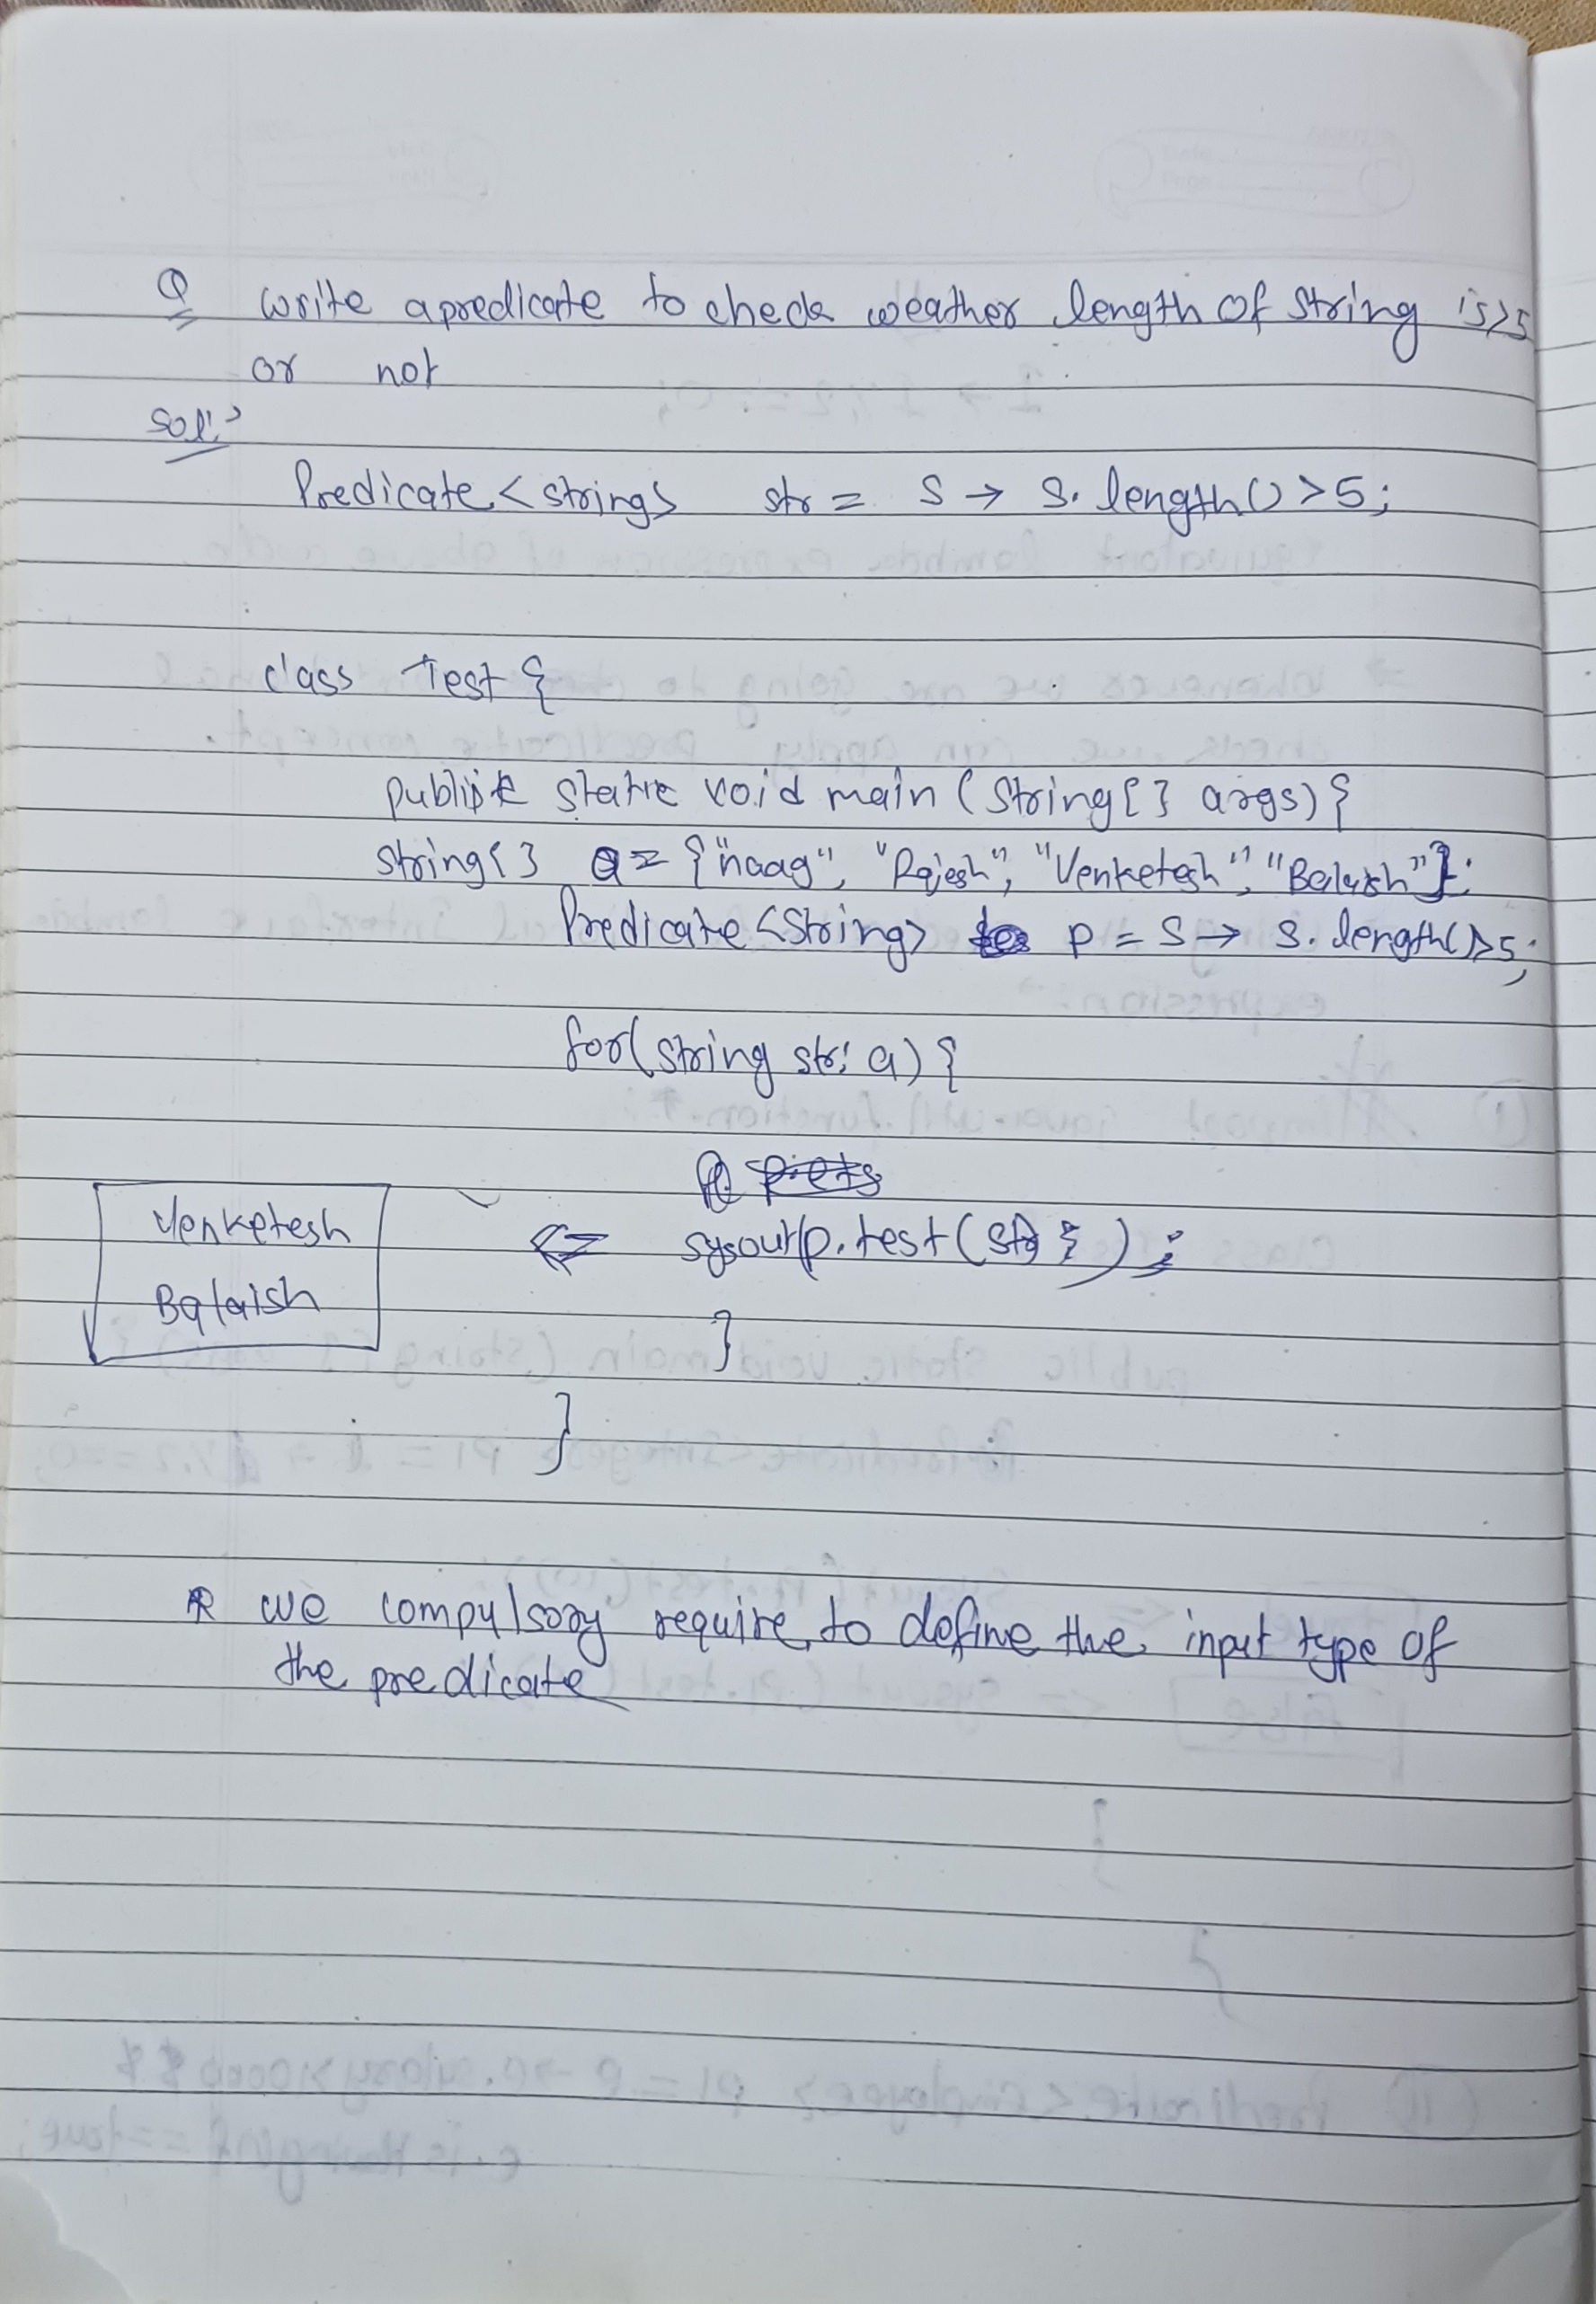 Q write a predicate to check weather length of string is >5
or not
Sol:>
Predicate <string> str = S → S. length() >5;
class Test {
public static void main (String[] args) {
String[] a = {"naag", "Rajesh", "Venketesh", "Balaish"};
Predicate <String> p = S → S. length()>5;
for(string str: a) {
Venketesh
sysout(p.test(str);
Balaish
}
}
* we compulsory require to define the input type of
the predicate